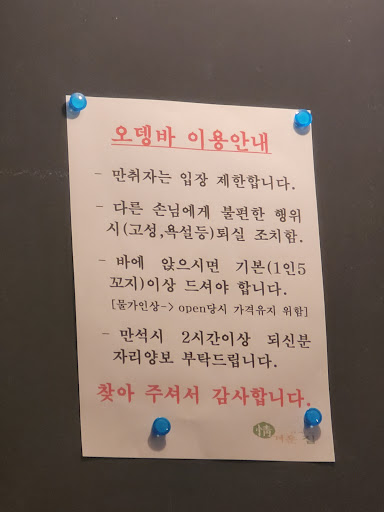 오뎅바 이용안내
- 만취자는 입장 제한합니다.
- 다른 손님에게 불편한 행위
시(고성,욕설등)퇴실 조치함.
- 바에 앉으시면 기본(1인5
꼬지)이상 드셔야 합니다.
[물가인상-> open당시 가격유지 위함]
- 만석시 2시간이상 되신분
자리양보 부탁드립니다.
찾아 주셔서 감사합니다.